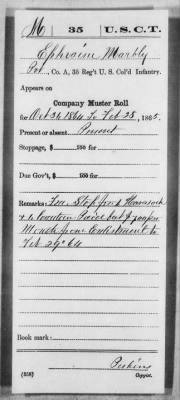 M | 35 | U.S.C.T.
Ephraim Marbly
Pvt., Co. A, 35 Reg't U. S. Col'd Infantry.
Appears on
Company Muster Roll
for Oct 31 1864 to Feb 28, 1865.
Present or absent Present
Stoppage, $ 100 for
Due Gov't, $ 100 for
Remarks: Stop for 1 Haversack
& 1 Canteen Paid but 7 
Month from Enlistment to
Feb 29" 64
Book mark:
Perkins
(358) Copyist.